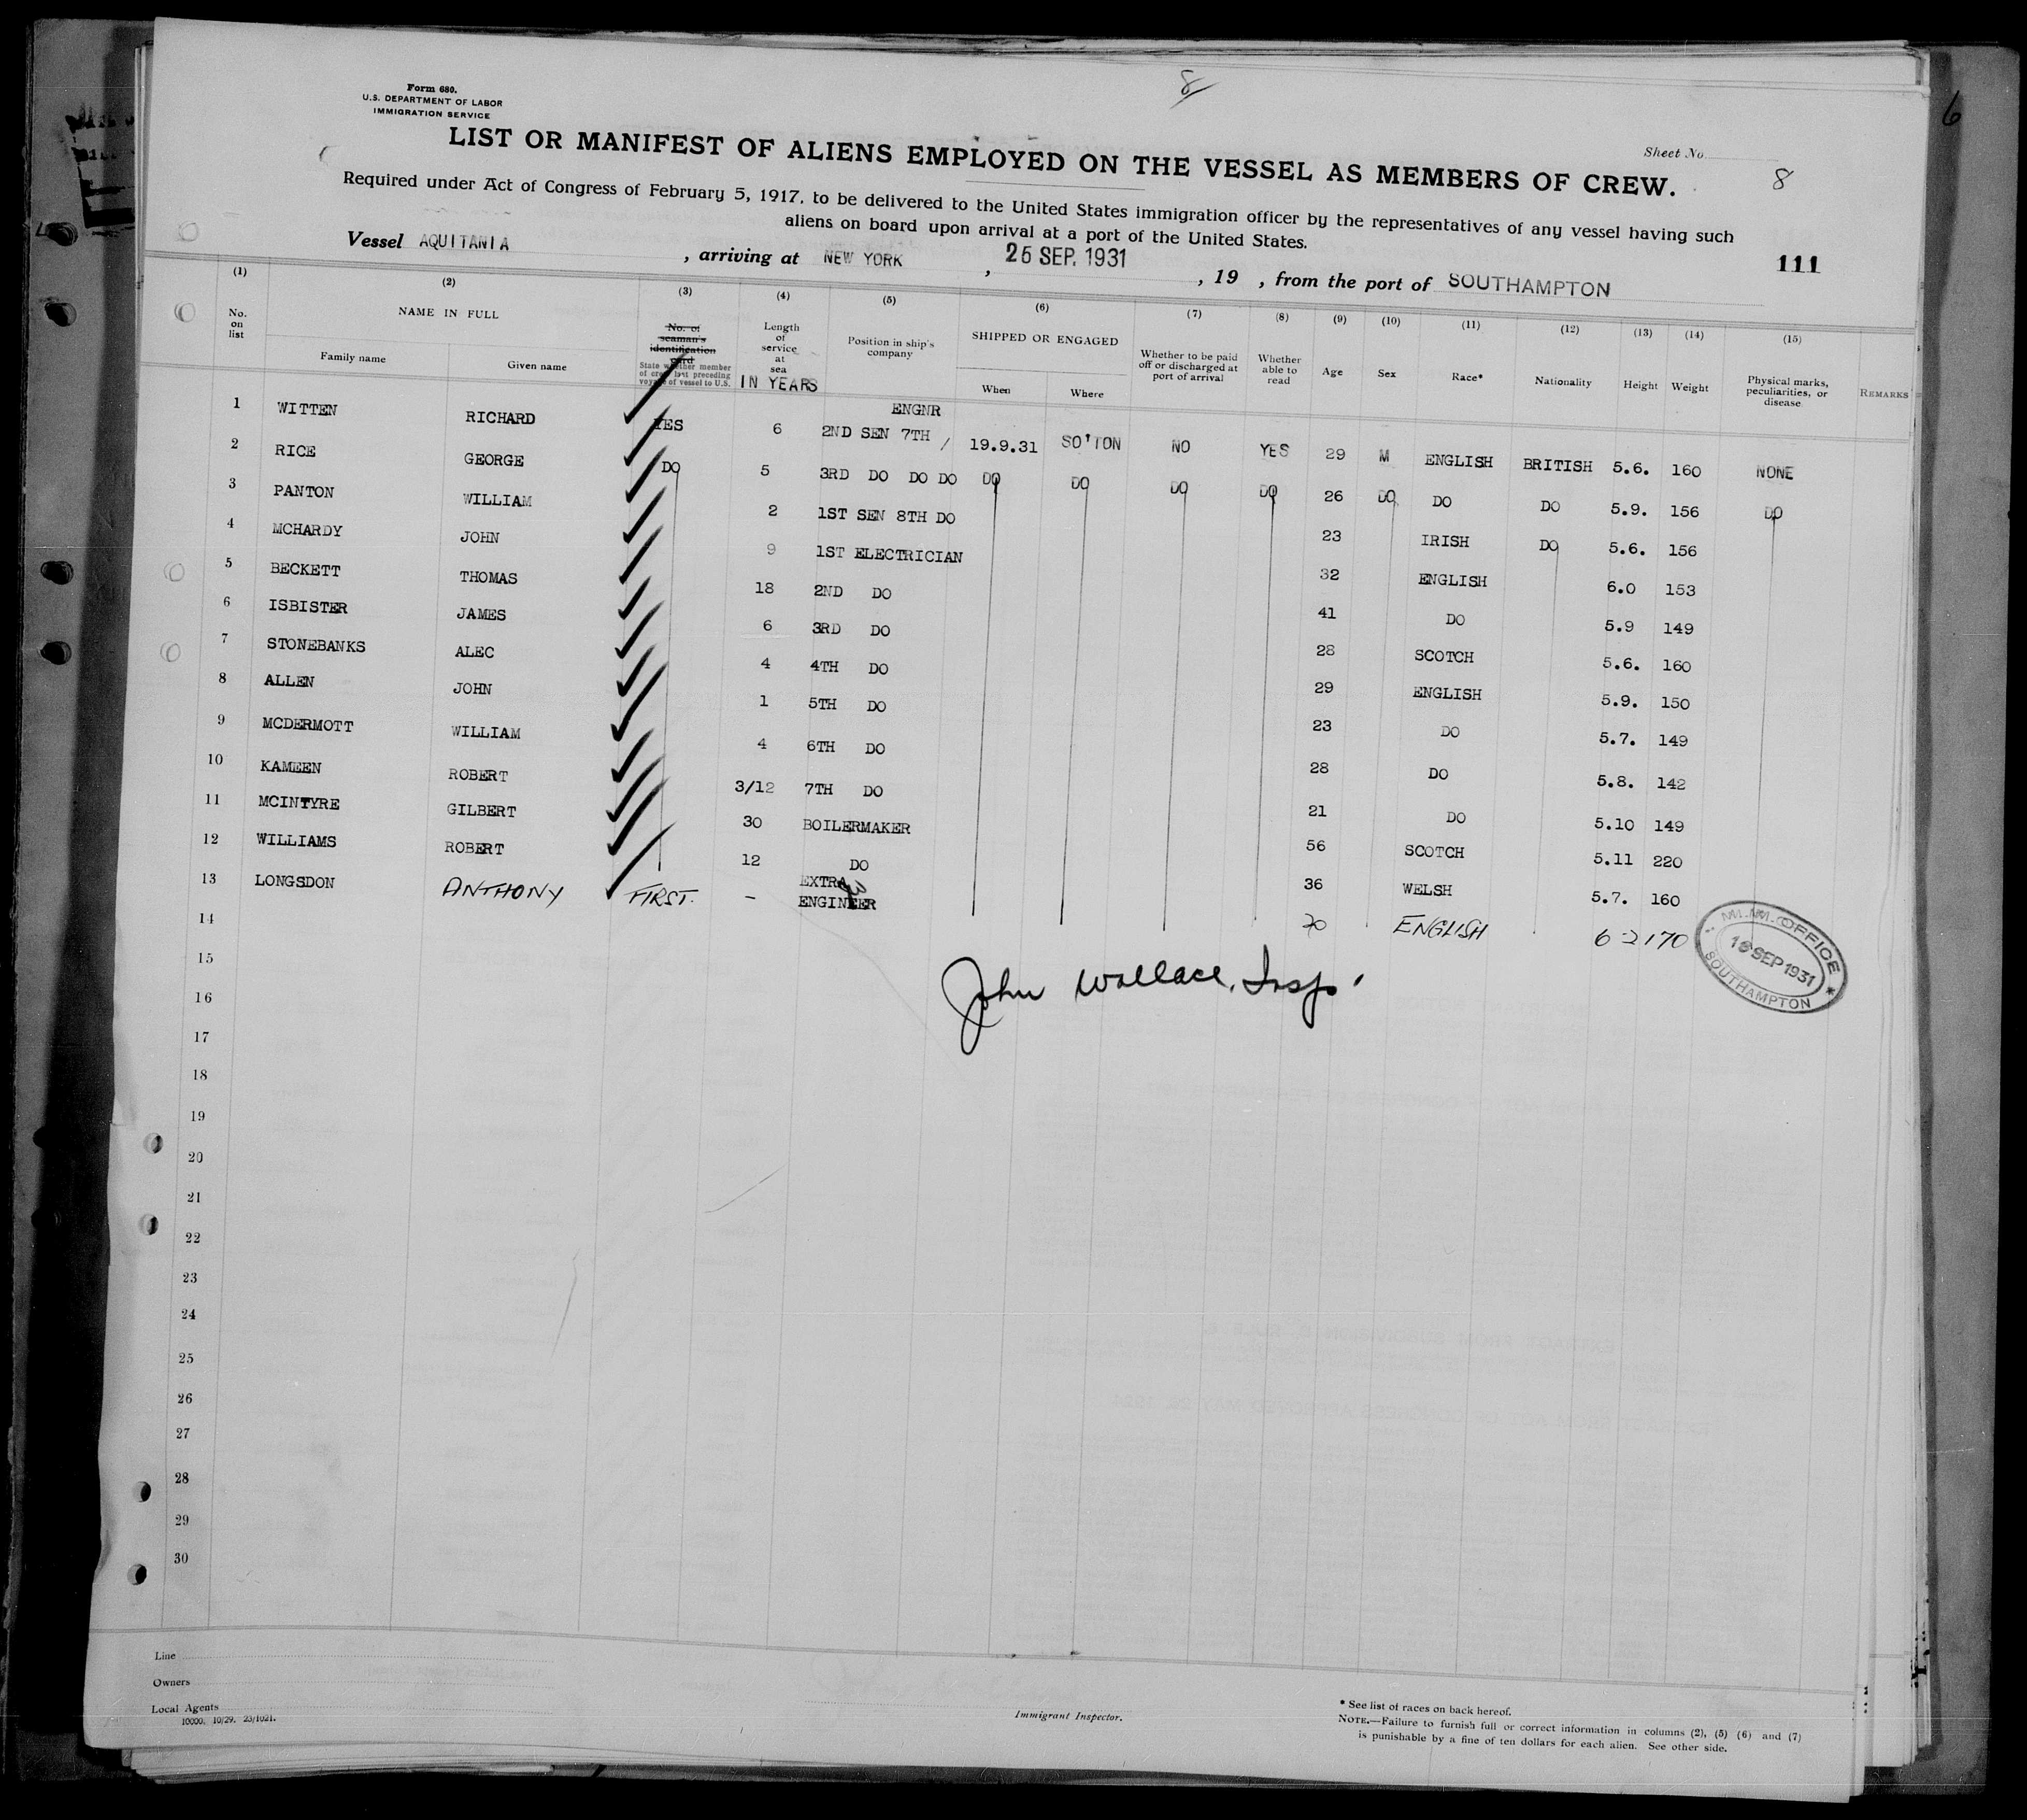 8
6
Form 680.
U.S. DEPARTMENT OF LABOR
IMMIGRATION SERVICE
LIST OR MANIFEST OF ALIENS EMPLOYED ON THE VESSEL AS MEMBERS OF CREW.
Sheet No. 8
Required under Act of Congress of February 5, 1917, to be delivered to the United States immigration officer by the representatives of any vessel having such
aliens on board upon arrival at a port of the United States.
Vessel AQUITANIA , arriving at NEW YORK , 25 SEP. 1931 , 19 , from the port of SOUTHAMPTON
111
(1) (2) (3) (4) (5) (6) (7) (8) (9) (10) (11) (12) (13) (14) (15)
No. on list
NAME IN FULL
Family name Given name
No. of seaman's identification card
State whether member of crew last preceding voyage of vessel to U.S.
Length of service at sea
IN YEARS
Position in ship's company
SHIPPED OR ENGAGED
When Where
Whether to be paid off or discharged at port of arrival
Whether able to read
Age Sex Race* Nationality Height Weight
Physical marks, peculiarities, or disease
REMARKS
1 WITTEN RICHARD YES 6 2ND SEN 7TH ENGNR / 19.9.31 SO'TON NO YES 29 M ENGLISH BRITISH 5.6. 160 NONE
2 RICE GEORGE DO 5 3RD DO DO DO DO DO DO DO 26 DO DO DO 5.9. 156 DO
3 PANTON WILLIAM 2 1ST SEN 8TH DO 23 IRISH DO 5.6. 156
4 MCHARDY JOHN 9 1ST ELECTRICIAN 32 ENGLISH 6.0 153
5 BECKETT THOMAS 18 2ND DO 41 DO 5.9 149
6 ISBISTER JAMES 6 3RD DO 28 SCOTCH 5.6. 160
7 STONEBANKS ALEC 4 4TH DO 29 ENGLISH 5.9. 150
8 ALLEN JOHN 1 5TH DO 23 DO 5.7. 149
9 MCDERMOTT WILLIAM 4 6TH DO 28 DO 5.8. 142
10 KAMEEN ROBERT 3/12 7TH DO 21 DO 5.10 149
11 MCINTYRE GILBERT 30 BOILERMAKER 56 SCOTCH 5.11 220
12 WILLIAMS ROBERT 12 DO 36 WELSH 5.7. 160
13 LONGSDON ANTHONY FIRST. - EXTRA ENGINEER ENGLISH 6-2 170
14
15
16
17
18
19
20
21
22
23
24
25
26
27
28
29
30
John Wallace, Insp.
OFFICE
SEP 1931
SOUTHAMPTON
Line
Owners
Local Agents
10000. 10/29. 23/1021.
Immigrant Inspector.
* See list of races on back hereof.
NOTE.—Failure to furnish full or correct information in columns (2), (5) (6) and (7)
is punishable by a fine of ten dollars for each alien. See other side.